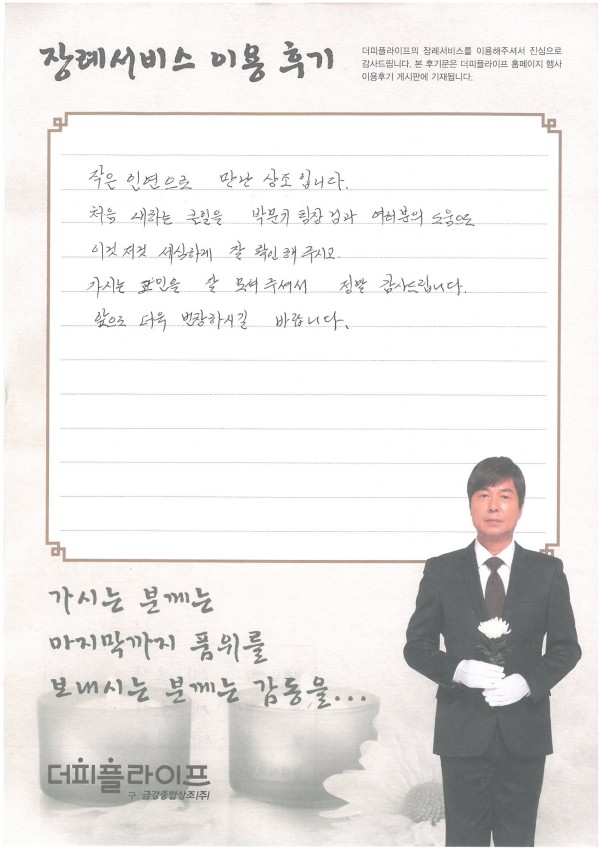 장례서비스 이용 후기
더피플라이프의 장례서비스를 이용해주셔서 진심으로
감사드립니다. 본 후기문은 더피플라이프 홈페이지 행사
이용후기 게시판에 기재됩니다.
작은 인연으로 만난 상조입니다.
처음 새하는 큰일을 박문기 팀장님과 여러분의 도움으로
이것 저것 세심하게 잘 확인해 주시고
가시는 고인을 잘 모셔 주셔서 정말 감사드립니다.
앞으로 더욱 번창하시길 바랍니다.
가시는 분께는
마지막까지 품위를
보내시는 분께는 감동을...
더피플라이프
구. 금강종합상조(주)